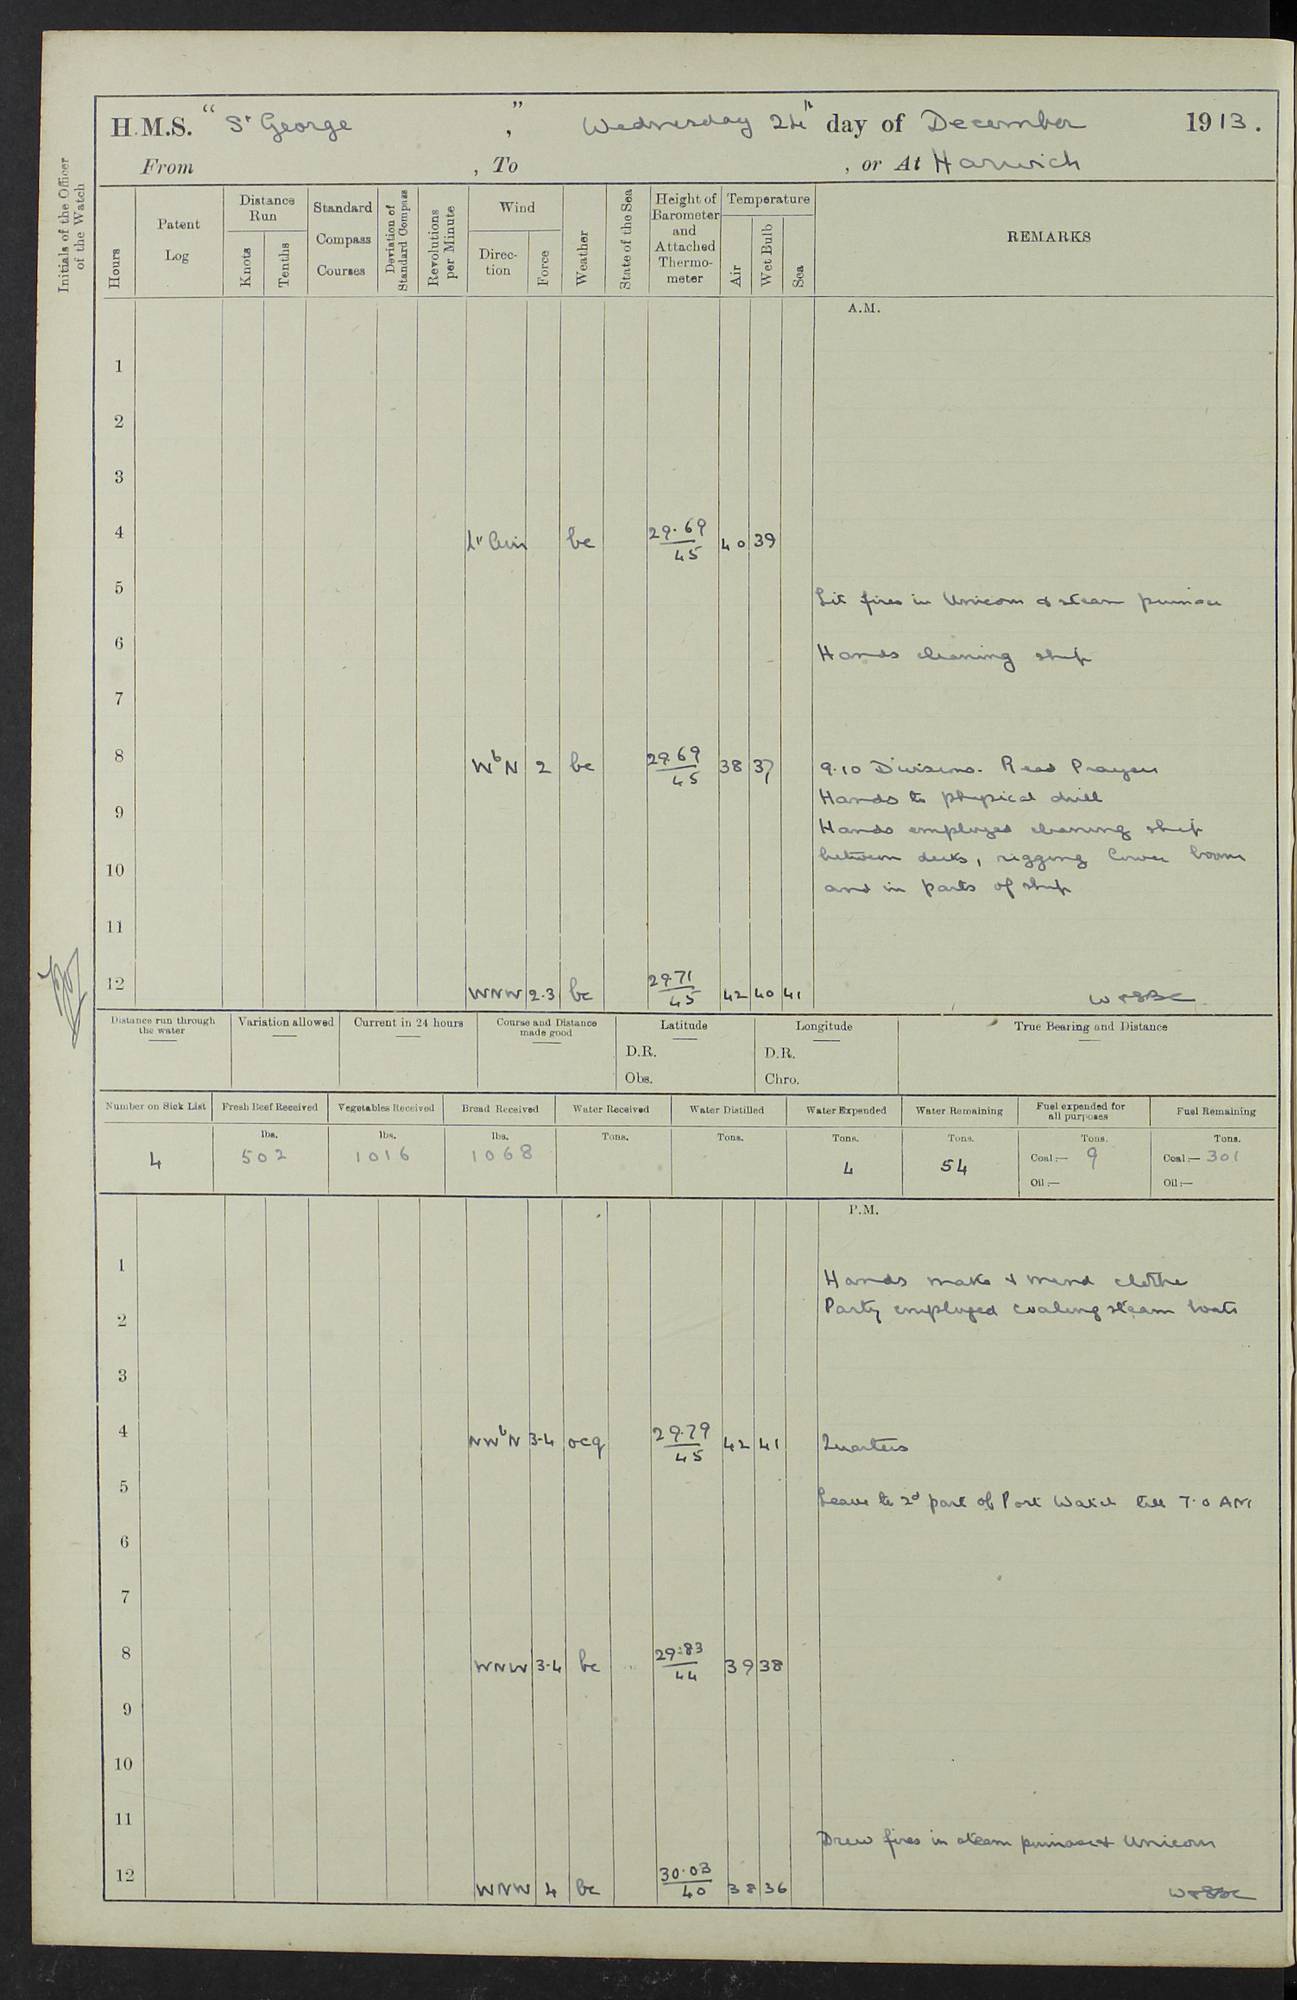 H.M.S. "St George", Wednesday 24th day of December 1913.
From , To , or At Harwich
Initials of the Officer of the Watch
Hours
Patent Log
Distance Run
Knots
Tenths
Standard Compass Courses
Deviation of Standard Compass
Revolutions per Minute
Wind
Direction
Force
Weather
State of the Sea
Height of Barometer and Attached Thermometer
Temperature
Air
Wet Bulb
Sea
REMARKS
A.M.
1
2
3
4 Lt Airs bc 29.69/45 40 39
5
Lit fires in Unicorn & steam pinnace
6
Hands cleaning ship
7
8 WbN 2 bc 29.69/45 38 37 9.10 Divisions. Read Prayers
Hands to physical drill
9
Hands employed cleaning ship
between decks, rigging lower boom
10
and in parts of ship
11
12 WNW 2.3 bc 29.71/45 42 40 41
Distance run through the water
Variation allowed
Current in 24 hours
Course and Distance made good
Latitude
D.R.
Obs.
Longitude
D.R.
Chro.
True Bearing and Distance
Number on Sick List Fresh Beef Received Vegetables Received Bread Received Water Received Water Distilled Water Expended Water Remaining Fuel expended for all purposes Fuel Remaining
lbs. lbs. lbs. Tons. Tons. Tons. Tons. Tons. Tons.
4 502 1016 1068 4 54 Coal:— 9 Coal:— 301
Oil:— Oil:—
P.M.
1
Hands make & mend clothes
Party employed coaling steam boats
2
3
4 NWbN 3-4 ocq 29.79/45 42 41 Quarters
5
Leave to 2d part of Port Watch till 7.0 AM
6
7
8 WNW 3-4 bc 29.83/44 39 38
9
10
11
Drew fires in steam pinnace & Unicorn
12 WNW 4 bc 30.03/40 38 36